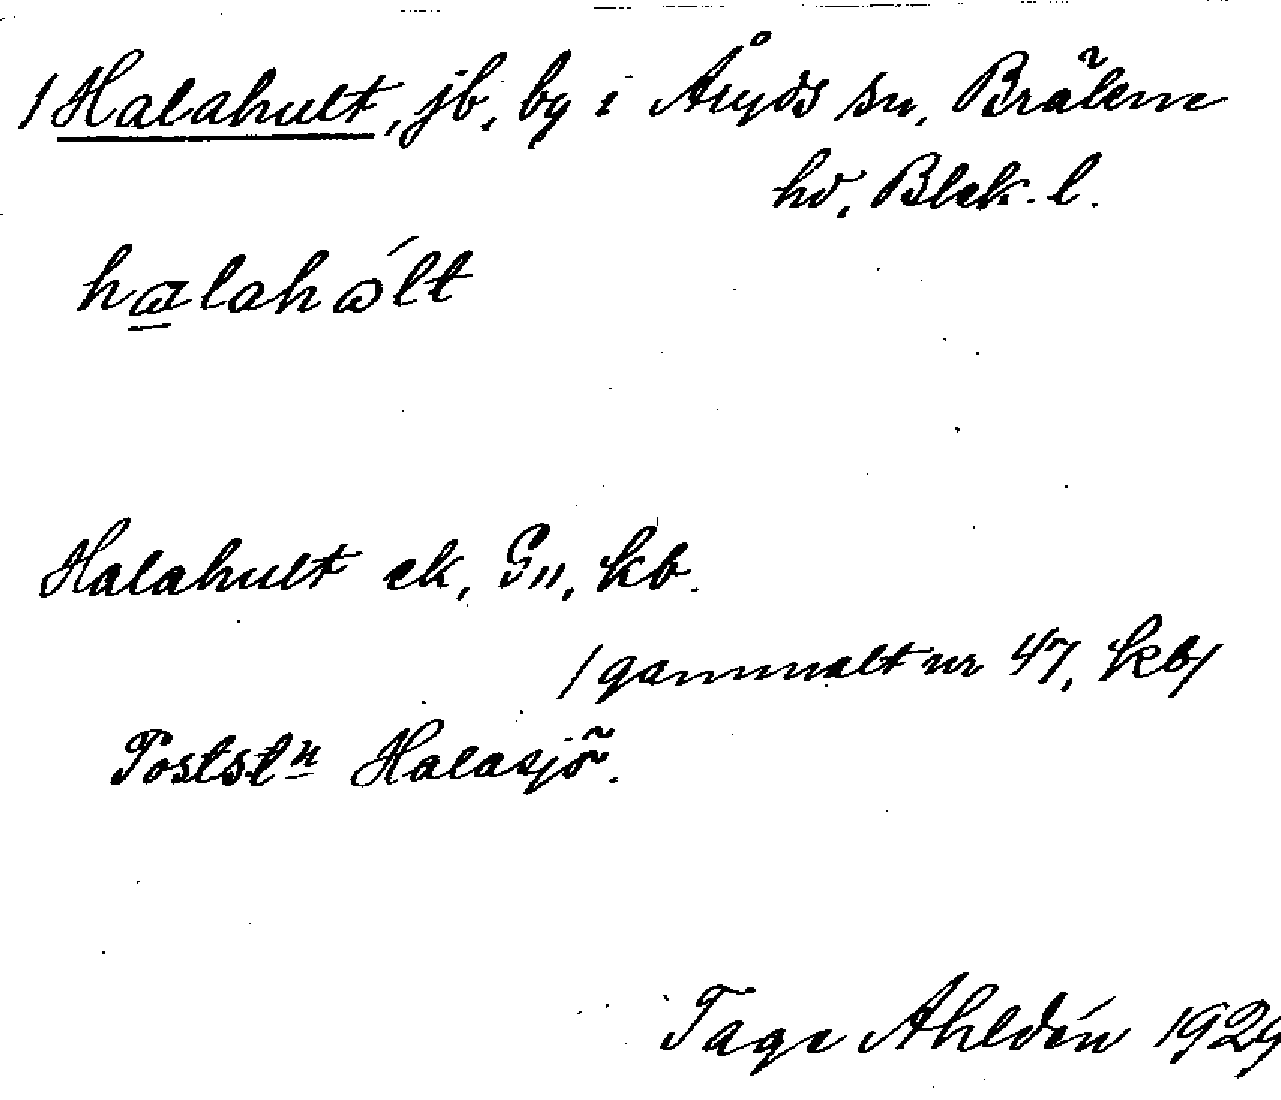 /Halahult, jb. by i Åryds sn, Bräkne
hd, Blek. l.
halahålt
Halahult ek, G11, kb.
/gammalt nr 47, kb/
Postst<sup>n</sup> Halasjö.
Tage Ahldén 1929